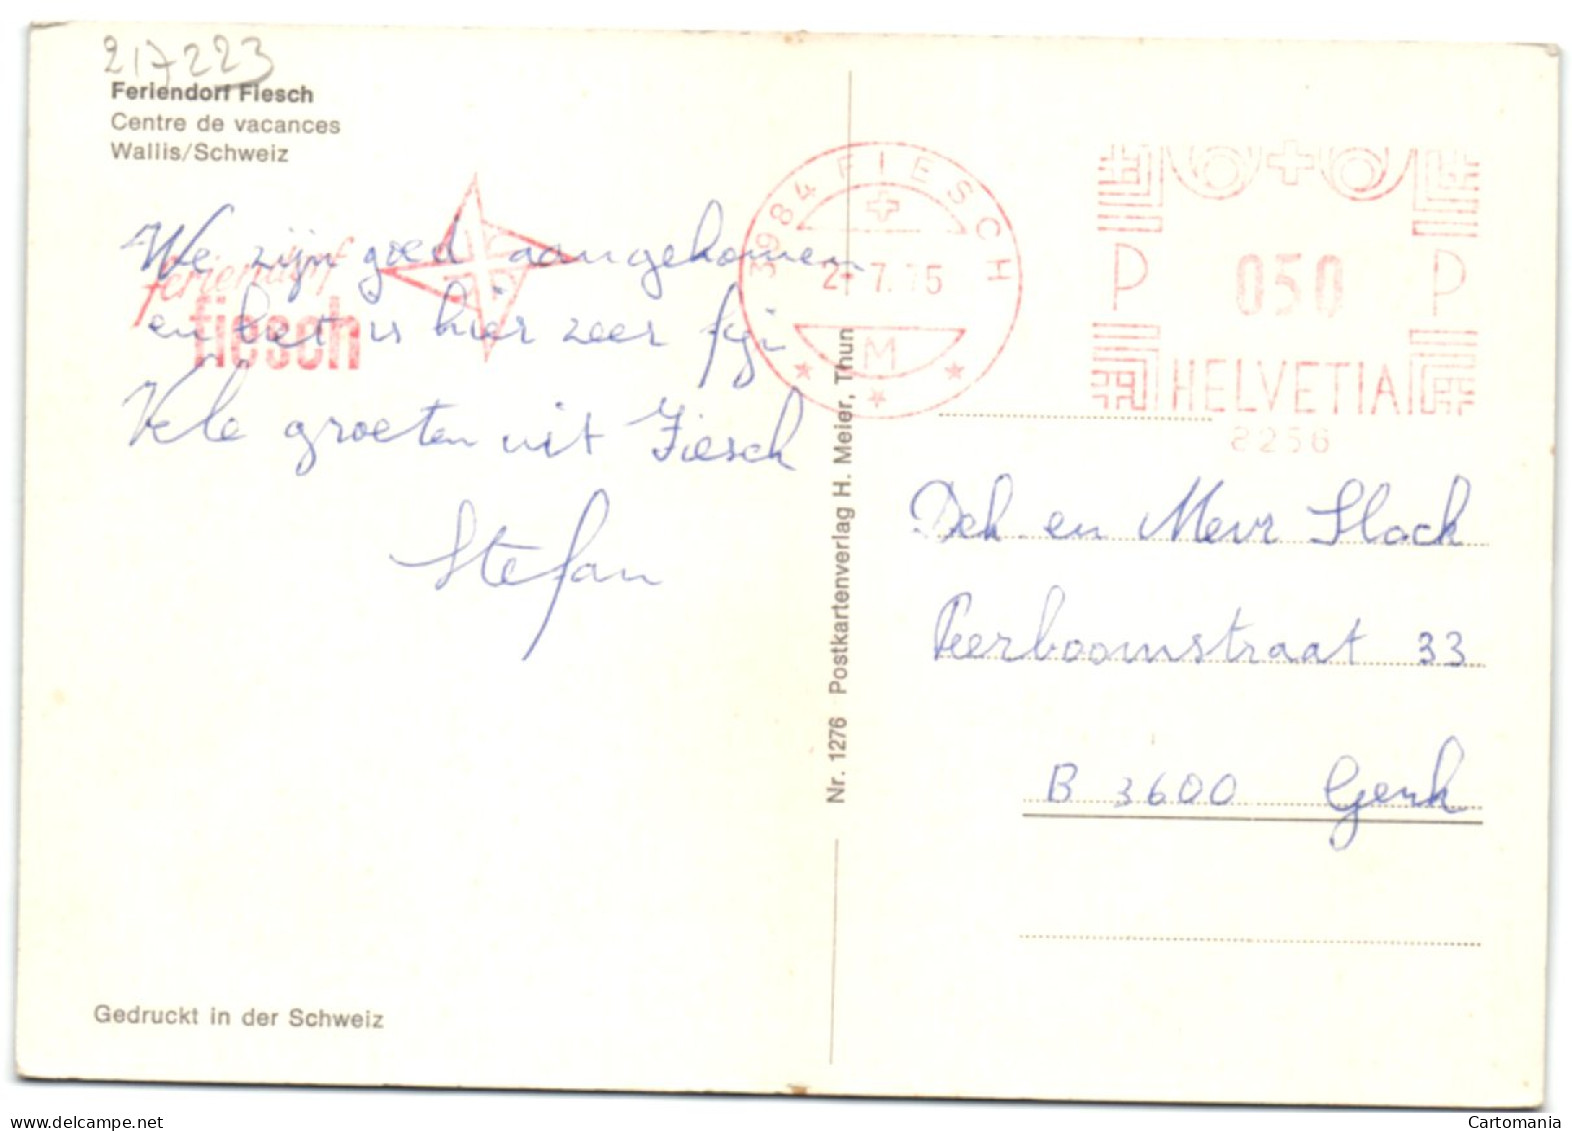 217223
Feriendorf Fiesch
Centre de vacances
Wallis/Schweiz
feriendorf
fiesch
We zijn goed aangekomen
en het is hier zeer fijn
Vele groeten uit Fiesch
Stefan
Gedruckt in der Schweiz
Nr. 1276 Postkartenverlag H. Meier, Thun
3984 FIESCH
2-7.75
M
P 050 P
HELVETIA
8256
en Mevr Slock
Peerboomstraat 33
B 3600 Genk
Cartomania